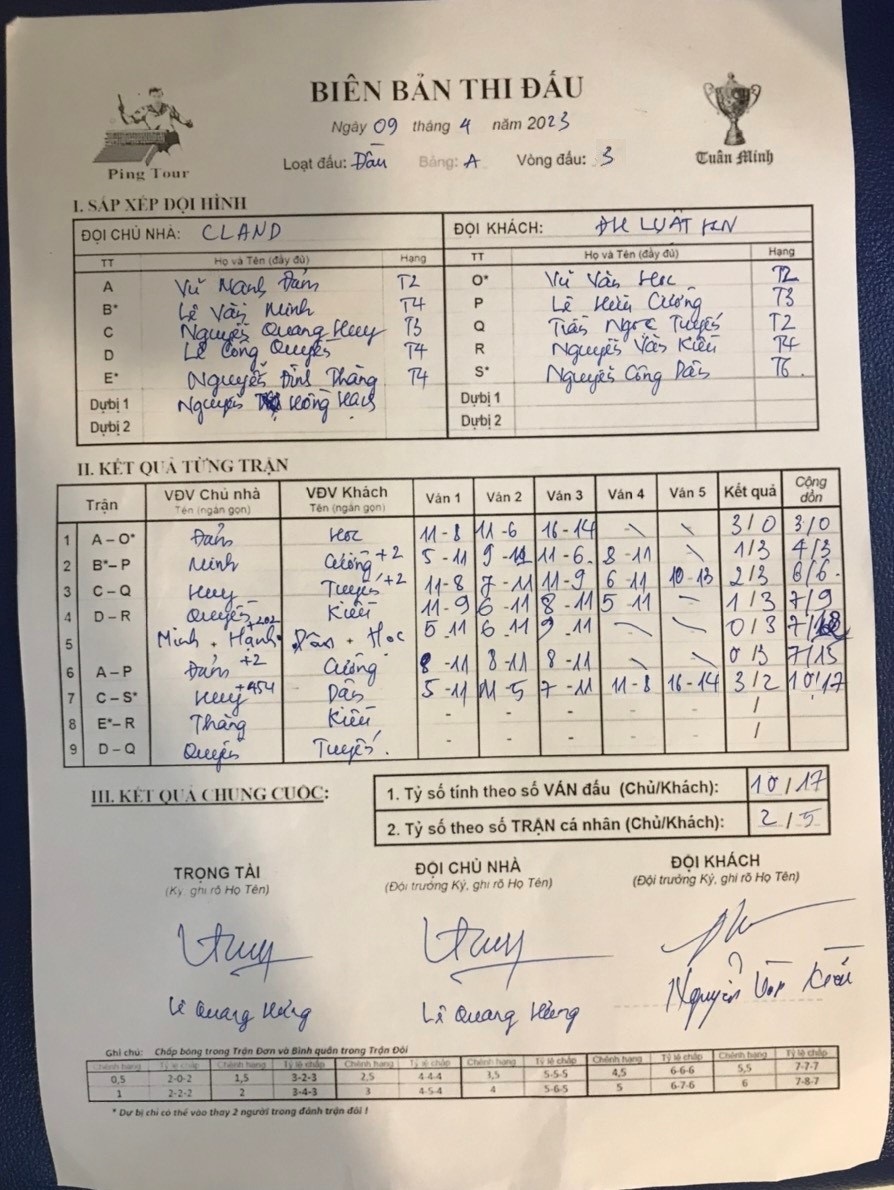 BIÊN BẢN THI ĐẤU
Ngày 09 tháng 4 năm 2023
Ping Tour
Loạt đấu: Đầu Bảng: A Vòng đấu: 3
Tuân Minh
I. SẮP XẾP ĐỘI HÌNH
ĐỘI CHỦ NHÀ: CLAND ĐỘI KHÁCH: ĐH LUẬT HN
TT Họ và Tên (đầy đủ) Hạng TT Họ và Tên (đầy đủ) Hạng
A Vũ Mạnh Đản T2 O* Vũ Văn Học T2
B* Lê Văn Minh T4 P Lê Hữu Cường T3
C Nguyễn Quang Huy T3 Q Trần Ngọc Tuyến T2
D Lê Công Quyền T4 R Nguyễn Văn Kiều T4
E* Nguyễn Đình Thắng T4 S* Nguyễn Công Dân T6.
Dự bị 1 Nguyễn Hồng Hạnh Dự bị 1
Dự bị 2 Dự bị 2
II. KẾT QUẢ TỪNG TRẬN
Trận VĐV Chủ nhà Tên (ngắn gọn) VĐV Khách Tên (ngắn gọn) Ván 1 Ván 2 Ván 3 Ván 4 Ván 5 Kết quả Cộng dồn
1 A – O* Đản Học 11 - 8 11 - 6 16 - 14 \ \ 3 / 0 3/0
2 B* – P Minh Cường +2 5 - 11 9 - 11 - 6. 8 - 11 \ 1/3 4/3
3 C – Q Huy Tuyến +2 11 - 8 7 - 11 11 - 9 6 - 11 10 - 13 2/3 6/6.
4 D – R Quyền Kiều 11 - 9 6 - 11 8 - 11 5 - 11 - 1 / 3 7/9
5 Minh + Hạnh +202 Dân + Học 5 . 11 6 . 11 9 . 11 \ \ 0 / 3 7/
6 A – P Đản +2 Cường 8 - 11 8 - 11 8 - 11 \ \ 0 /3 7/15
7 C – S* Huy +454 Dân 5 - 11 11 - 5 7 - 11 11 - 8 16 - 14 3/2 10/17
8 E* – R Thắng Kiều - - - - - /
9 D – Q Quyền Tuyến. - - - - - /
III. KẾT QUẢ CHUNG CUỘC:
1. Tỷ số tính theo số VÁN đấu (Chủ/Khách): 10 / 17
2. Tỷ số theo số TRẬN cá nhân (Chủ/Khách): 2 / 5
TRỌNG TÀI ĐỘI CHỦ NHÀ ĐỘI KHÁCH
(Ký, ghi rõ Họ Tên) (Đội trưởng Ký, ghi rõ Họ Tên) (Đội trưởng Ký, ghi rõ Họ Tên)
Lê Quang Hưng Lê Quang Hưng Nguyễn Văn Kiều
Ghi chú: Chấp bóng trong Trận Đơn và Bình quân trong Trận Đôi
Chênh hạng Tỷ lệ chấp Chênh hạng Tỷ lệ chấp Chênh hạng Tỷ lệ chấp Chênh hạng Tỷ lệ chấp Chênh hạng Tỷ lệ chấp Chênh hạng Tỷ lệ chấp
0,5 2-0-2 1,5 3-2-3 2,5 4-4-4 3,5 5-5-5 4,5 6-6-6 5,5 7-7-7
1 2-2-2 2 3-4-3 3 4-5-4 4 5-6-5 5 6-7-6 6 7-8-7
* Dự bị chỉ có thể vào thay 2 người trong đánh trận đôi !